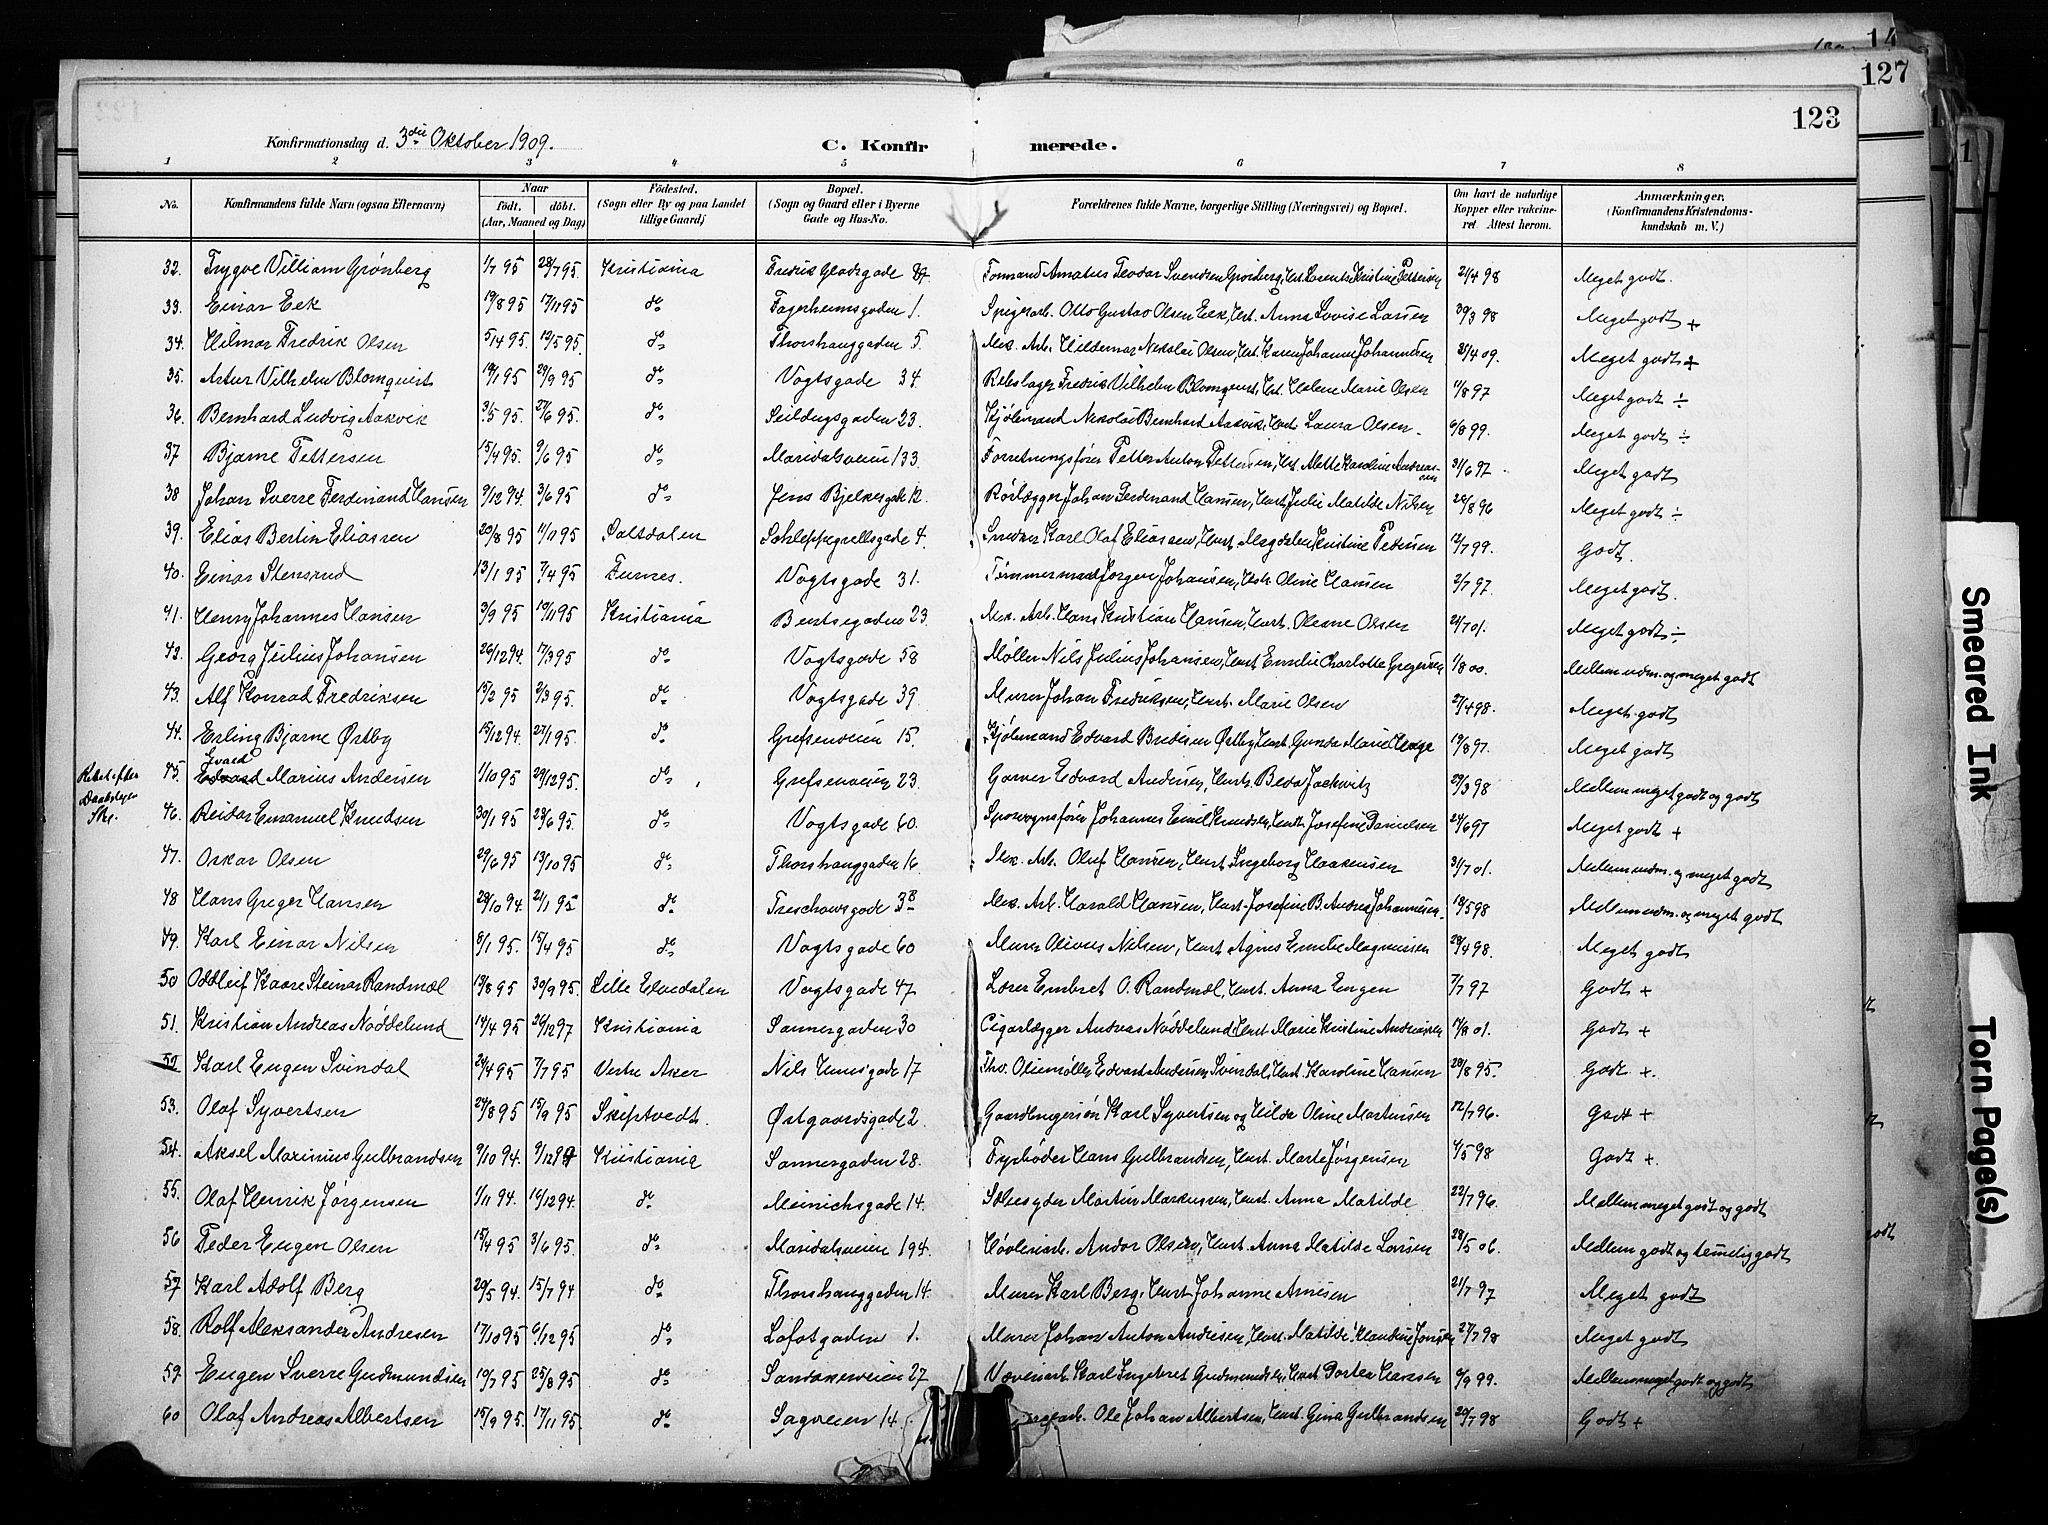 14
127
123
Konfirmationsdag d. 3die Oktober 1909.
C. Konfirmerede.
1 2 3 4 5 6 7 8
No. Konfirmandens fulde Navn (ogsaa Efternavn) Naar födt. döbt. (Aar, Maaned og Dag) Födested. (Sogn eller By og paa Landet tillige Gaard) Bopæl. (Sogn og Gaard eller i Byerne Gade og Hus-No. Forældrenes fulde Navne, borgerlige Stilling (Næringsvei) og Bopæl. Om havt de naturlige Kopper eller vakcineret. Attest herom. Anmærkninger. (Konfirmandens Kristendomskundskab m. V.)
32. Trygve Villiam Grønberg 1/7 95 28/7 95. Kristiania Fredrik Gladsgade Formand Amatus Teodor Svendsen Grønberg, Hust. Laurentze Kristine Pettersen 21/4 98 Meget godt.
33. Einar Eek 19/8 95 17/11 95 do Fagerheimsgaden 1. Spigerarb. Otto Gustav Olsen Eek, Hust. Anna Lovise Larsen 30/3 98 Meget godt +
34. Hilmar Fredrik Olsen 5/4 95. 12/5 95. do Thorshauggaden 5. Mek. Arb. Hildemar Nikolai Olsen, Hust. Karen Johanne Johannesen 21/4 09. Meget godt +
35. Artur Vilhelm Blomqvist 19/1 95 29/9 95 do Vogtsgade 34. Rebslager Fredrik Vilhelm Blomqvist, Hust. Helene Marie Olsen 11/8 97 Meget godt ÷
36. Bernhard Ludvig Aakvik 3/5 95. 27/6 95. do Seilduksgaden 23. Kjøbmand Nikolai Bernhard Aakvik, Hust. Laura Olsen. 6/8 99. Meget godt ÷
37 Bjarne Pettersen 15/4 95. 9/6 95 do Maridalsveien 133. Forretningsfører Petter Anton Pettersen, Hust. Alette Karoline Andreassen 31/6 97. Meget godt
38 Johan Sverre Ferdinand Hansen 9/12 94. 3/6 95 do Jens Bjelkesgade 12. Rørlægger Johan Ferdinand Hansen, Hust. Julie Matilde Nilsen 26/8 96 Meget godt ÷
39. Elias Bertin Eliassen 20/8 95 11/11 95 Saltdalen Schleppegrellsgade 4. Snedker Karl Olaf Eliassen, Hust. Magdalen Kristine Pedersen 12/7 99. Godt.
40. Einar Stensrud 13/1 95 7/4 95 Furnes. Vogtsgade 31. Tømmermand Jørgen Johansen, Hustr. Oline Hansen 2/7 97. Meget godt.
41. Henry Johannes Hansen 3/9 95 10/11 95 Kristiania Bentsegaden 23. Mek. Arb. Hans Kristian Hansen, Hust. Oleane Olsen 24/7 01. Meget godt ÷
42. Georg Julius Johansen 26/12 94. 17/3 95 do Vogtsgade 58 Møller Nils Julius Johansen, Hust. Emilie Charlotte Gregersen 1/8 00. Mellem udm. og meget godt
43. Alf Konrad Fredriksen 15/2 95 3/3 95. do Vogtsgade 39 Murer Johan Fredriksen, Hust. Marie Olsen 27/4 98. Meget godt
44. Erling Bjarne Østby 15/12 94. 27/1 95. do Grefsenveien 15. Kjøbmand Edvard Bredesen Østby, Hust. Gunda Marie Hage 19/8 97. Meget godt
Rettet efter Daabslyen Skr.
45. Edvard Ivald Marius Andersen 1/10 95 29/12 95. do Grefsenveien 23. Garver Edvard Andersen, Hustr. Beda Jackwitz 29/3 98 Mellem meget godt og godt
46. Reidar Emanuel Knudsen 30/1 95 23/6 95. do Vogtsgade 60. Sporvognsfører Johannes Emil Knudsen, Hust. Josefine Danielsen 24/6 97 Meget godt +
47. Oskar Olsen 29/6 95 13/10 95 do Thorshauggaden 16. Mek. Arb. Oluf Hansen, Hust. Ingeborg Haakensen 31/7 01. Mellem udm. og meget godt
48 Hans Greger Hansen 28/10 94. 21/1 95 do Treschowsgade 3B Mek. Arb. Harald Hansen, Hust. Josefine B. Andrea Johannesen. 18/5 98 Mellem udm. og meget godt
49. Karl Einar Nilsen 8/1 95. 15/4 95 do Vogtsgade 60 Murer Olivius Nilsen, Hust. Agnes Emilie Magnussen 28/4 98. Meget godt
50 Oddleif Kaare Steinar Randmæl 19/8 95 30/9 95. Lille Elvedalen Vogtsgade 47 Lærer Embret O. Randmæl, Hust. Anna Engen 7/7 97 Godt +
51. Kristian Andreas Nøddelund 14/4 95 26/12 97 Kristiania Sannergaden 30 Cigarlægger Andreas Nøddelund, Hust. Marie Kristine Andreassen 17/8 01. Godt +
52. Karl Eugen Svindal 24/4 95 7/7 95 Vestre Aker Nils Huusgade 17 Fhv. Oliemøller Edvart Andersen Svindal, Hust. Karoline Hansen 28/8 95. Godt +.
53. Olaf Syvertsen 24/8 95 15/9 95 Skiptvedt. Østgaardsgade 2. Gaardbrugersøn Karl Syvertsen og Hilda Oline Martinsen 12/7 96. Godt +
54. Aksel Marinius Gulbrandsen 9/10 94. 9/12 94 Kristiania Sannergaden 28. Fyrbøder Hans Gulbrandsen, Hust. Marte Jørgensen 4/5 98 Godt +.
55. Olaf Henrik Jørgensen 1/11 94. 16/12 94. do Meinichsgade 14. Martin Markussen, Hust. Anna Matilde 22/7 96. Mellem meget godt og godt
56 Peder Eugen Olsen 15/4 95 3/6 95. do Maridalsveien 194. Høvleriarb. Andor Olsen, Hust. Anna Matilde Larsen 28/5 06. Mellem godt og temelig godt
57 Karl Adolf Berg 20/5 94. 15/7 94 do Thorshauggaden 14. Murer Karl Berg, Hust. Johanne Arnesen 21/7 97 Meget godt
58. Rolf Aleksander Andresen 17/10 95 6/12 95 do Lofotgaden 1. Murer Johan Anton Andresen, Hust. Matilde Klaudine Jonsen 27/7 98 Meget godt
59. Eugen Sverre Gudmundsen 19/7 95 25/8 95 do Sandakerveien 27 Væveriarb. Karl Ingebret Gudmundsen, Hust. Dortea Hansen 6/9 99. Mellem meget godt og godt
60 Olaf Andreas Albertsen 15/9 95. 17/11 95. do Sagveien 14. Ole Johan Albertsen, Hust. Gina Gulbrandsen 20/7 98 Godt +
godt
Smeared Ink
Torn Page(s)